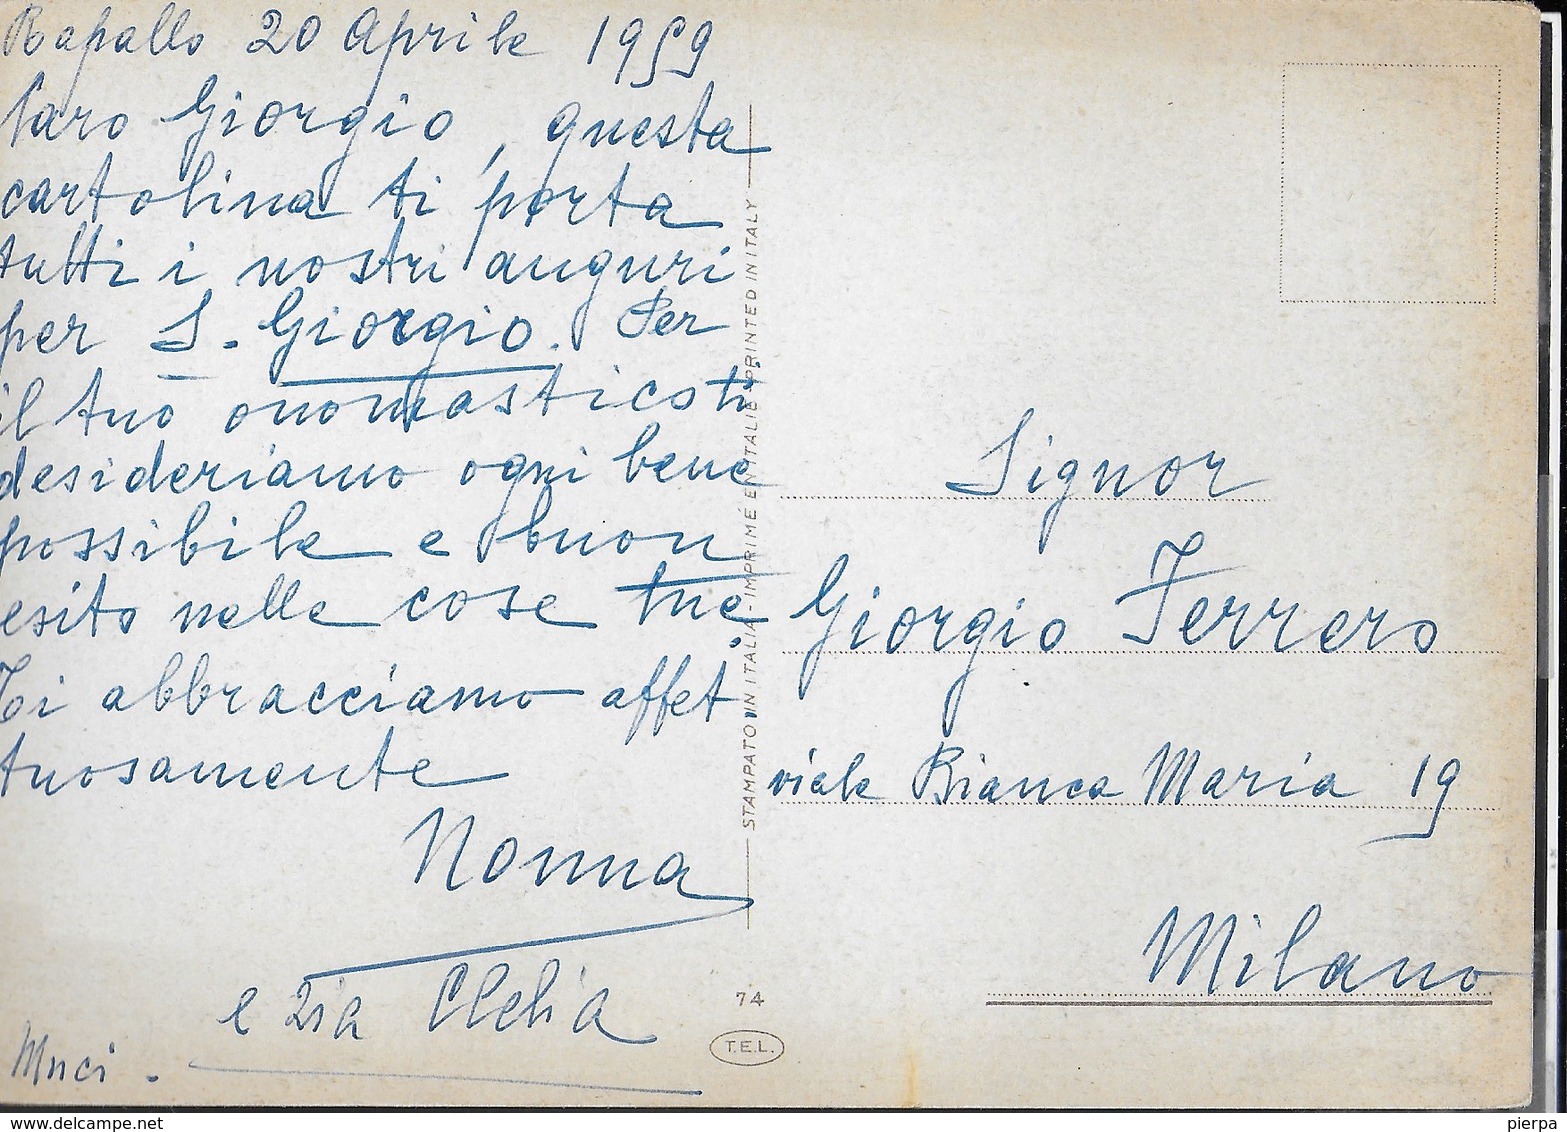 Rapallo 20 Aprile 1959
Caro Giorgio, questa
cartolina ti porta
tutti i nostri auguri
per S. Giorgio. Per
il tuo onomastico ti
desideriamo ogni bene
possibile e buon
esito nelle cose tue.
Ti abbracciamo affet
tuosamente
Nonna
e zia Clelia
Muci.
STAMPATO IN ITALIA - IMPRIMÉ EN ITALIE - PRINTED IN ITALY
74
T.E.L.
Signor
Giorgio Ferrero
viale Bianca Maria 19
Milano
delcampe.net
pierpa